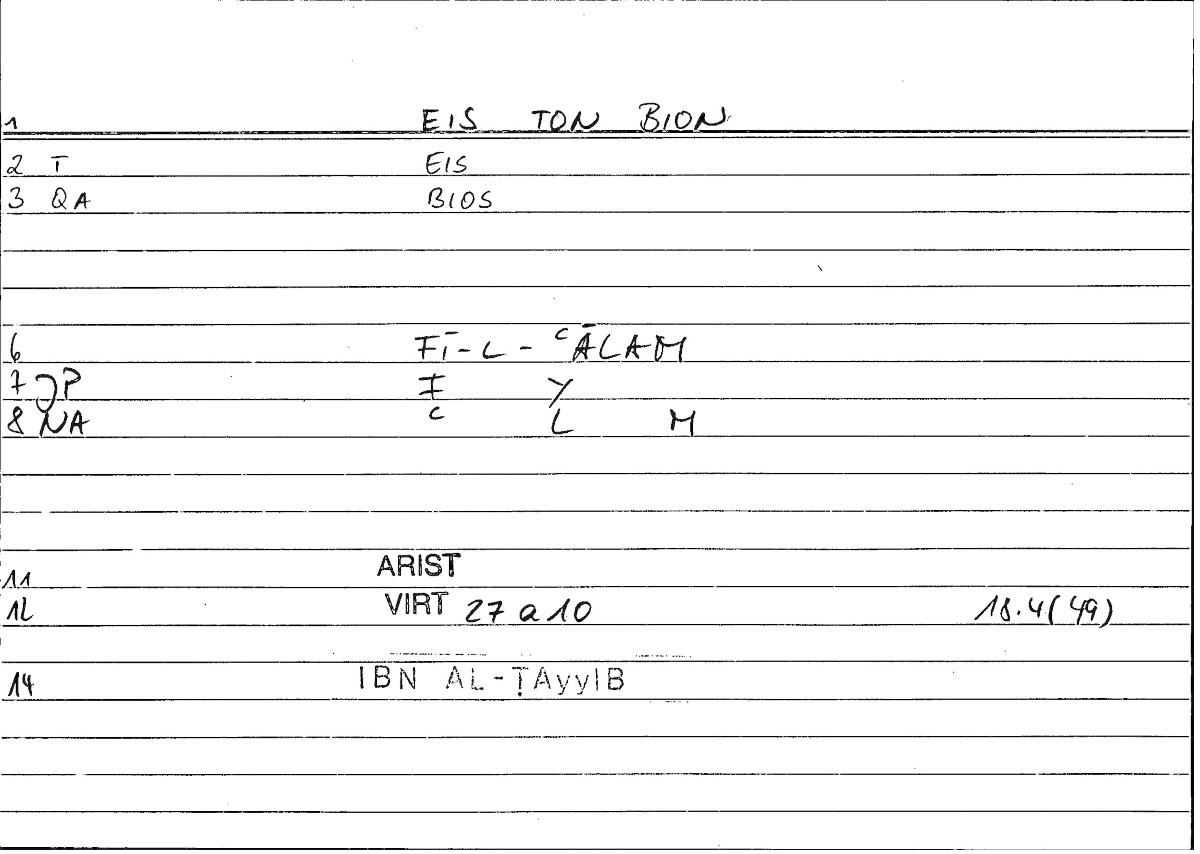 1 EIS TON BION
2 T EIS
3 QA BIOS
6 FĪ-L-ᶜĀLAM
7 JP F Y
8 NA ᶜ L M
11 ARIST
12 VIRT 27 a 10 18.4(49)
14 IBN AL-ṬAyyIB